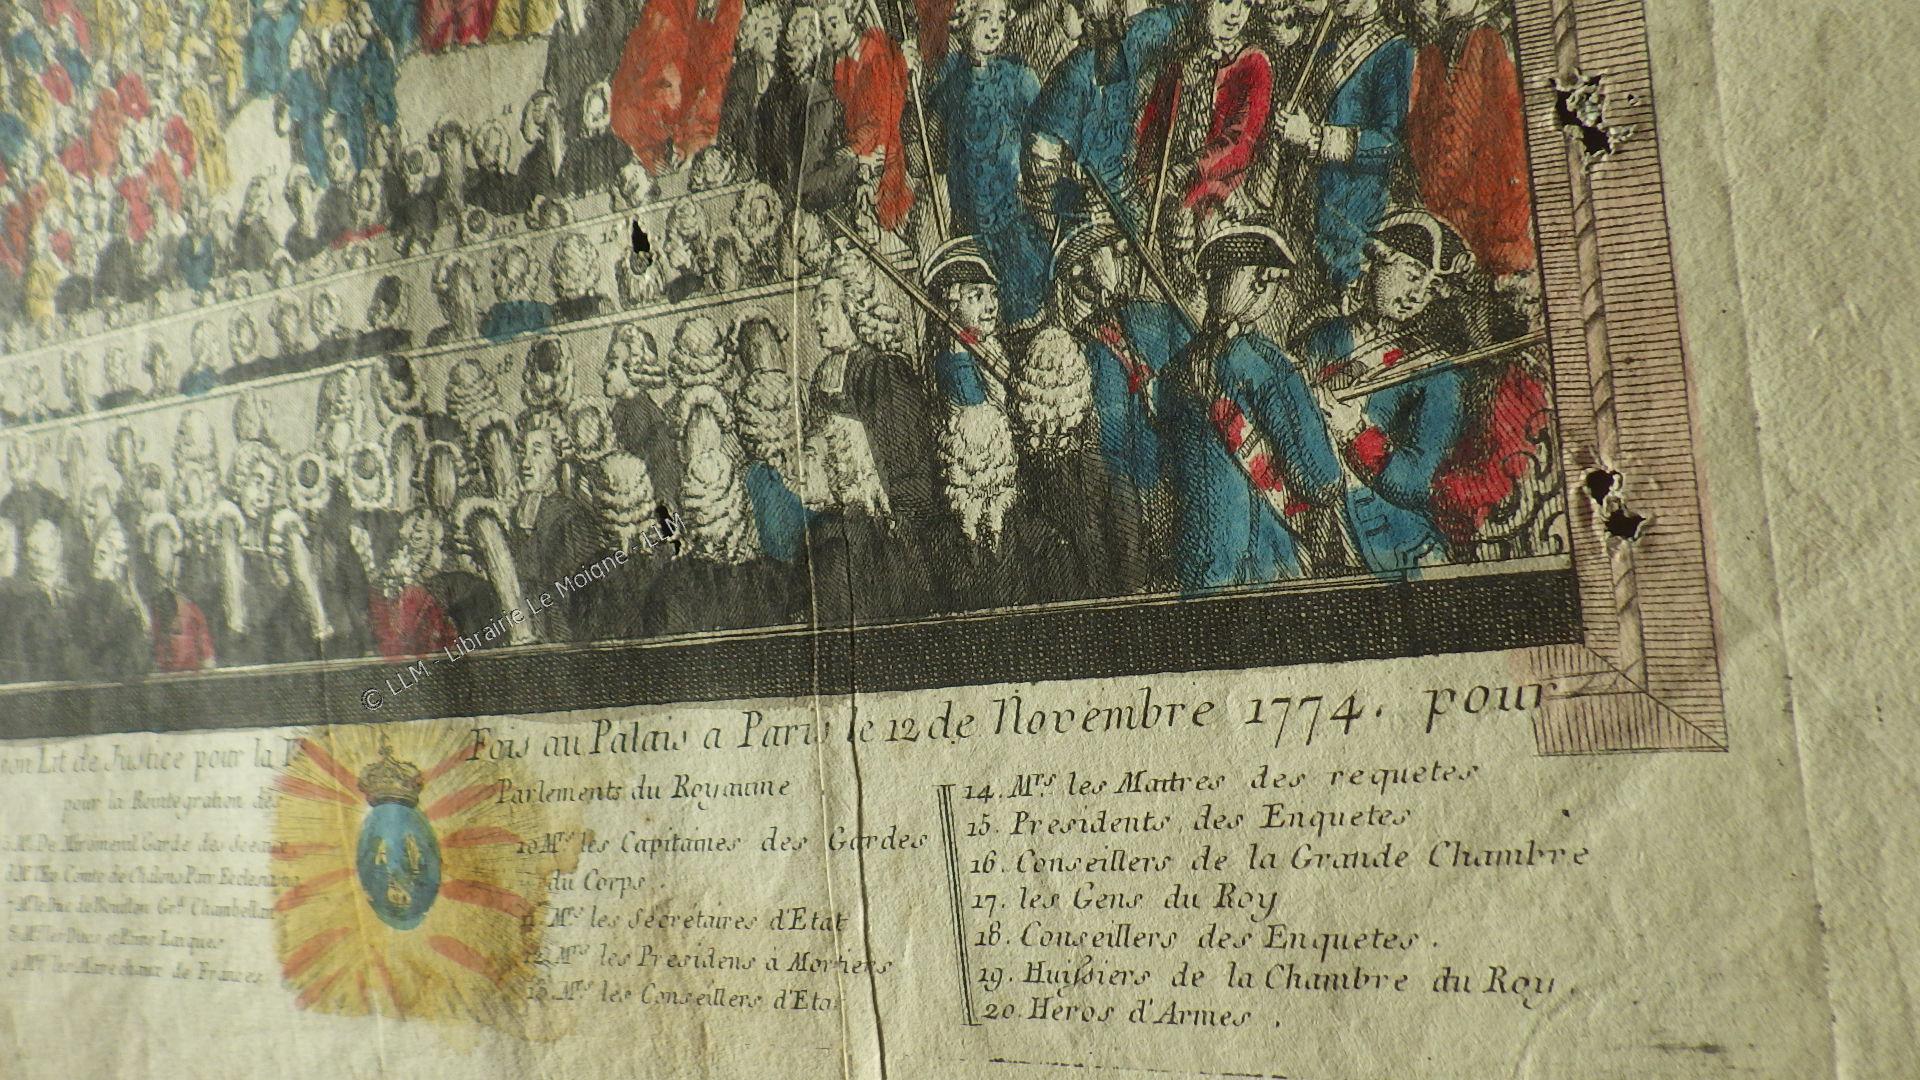 Lit de Justice pour la P Fois au Palais a Paris le 12 de Novembre 1774. pour
pour la Reintegration des Parlements du Royaume
Garde des Sceaux
Comte de Chalons Pair
7. Mr le Duc de Bouillon Gd Chambellan
8. Mrs les Ducs et Pairs Laiques
9 Mrs les Marechaux de Frances
10 Mrs les Capitaines des Gardes
du Corps.
11. Mrs les Secretaires d'Etat
12. Mrs les Presidens à Mortiers
13. Mrs les Conseillers d'Etat
14. Mrs les Maitres des requetes
15. Presidents des Enquetes
16. Conseillers de la Grande Chambre
17. les Gens du Roy
18. Conseillers des Enquetes.
19. Huissiers de la Chambre du Roy.
20. Heros d'Armes.
11
11
15
18
© LLM - Librairie Le Moigne - LLM